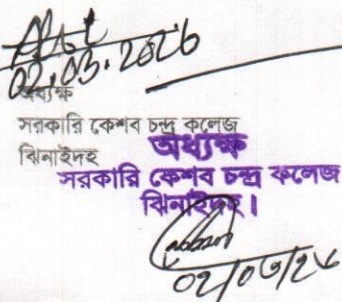 02.03.2026
অধ্যক্ষ
সরকারি কেশব চন্দ্র কলেজ
ঝিনাইদহ
অধ্যক্ষ
সরকারি কেশব চন্দ্র কলেজ
ঝিনাইদহ।
02/03/26